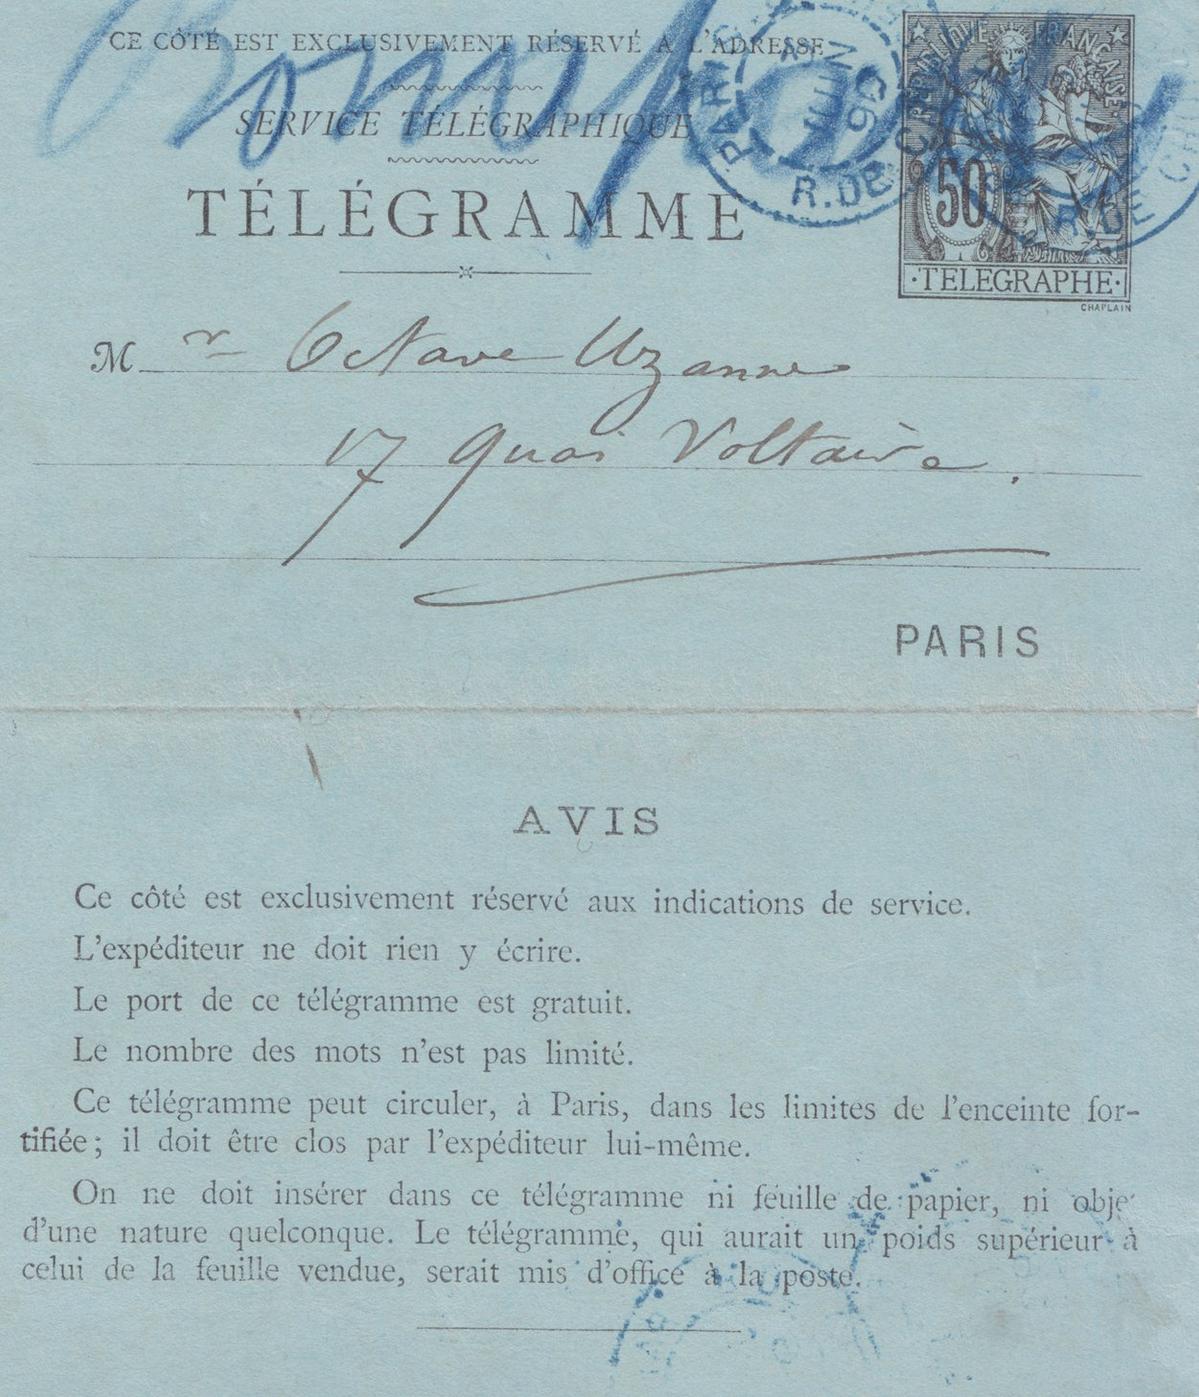 CE CÔTÉ EST EXCLUSIVEMENT RÉSERVÉ A L'ADRESSE
SERVICE TÉLÉGRAPHIQUE
TÉLÉGRAMME
PARIS
JUIN
R. DE
RÉPUBLIQUE FRANÇAISE
50
TELEGRAPHE
CHAPLAIN
R. DE
M r Octave Uzanne
17 Quai Voltaire.
PARIS
AVIS
Ce côté est exclusivement réservé aux indications de service.
L'expéditeur ne doit rien y écrire.
Le port de ce télégramme est gratuit.
Le nombre des mots n'est pas limité.
Ce télégramme peut circuler, à Paris, dans les limites de l'enceinte for-
tifiée; il doit être clos par l'expéditeur lui-même.
On ne doit insérer dans ce télégramme ni feuille de papier, ni obje
d'une nature quelconque. Le télégramme, qui aurait un poids supérieur à
celui de la feuille vendue, serait mis d'office à la poste.